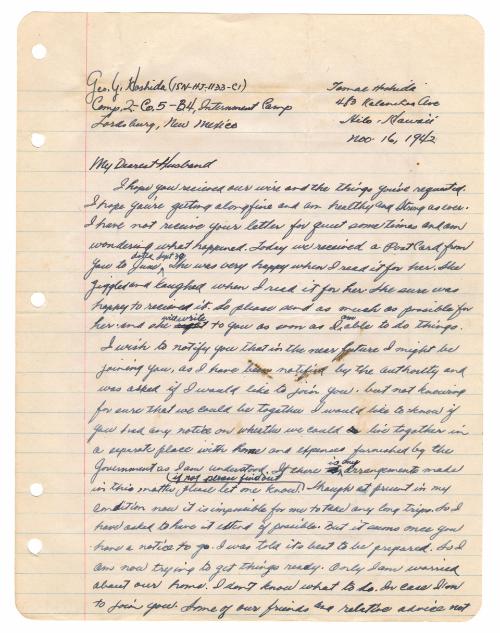 Geo. Y. Hoshida (ISN-HJ-1133-CI)
Comp. 2-Co. 5-B4, Internment Camp
Lordsburg, New Mexico
Tamae Hoshida
483 Kalanikoa Ave
Hilo-Hawaii
Nov. 16, 1942
My Dearest Husband
I hope you recieved our wire and the things you've requested.
I hope you're getting along fine and am healthy and strong as ever.
I have not receive your letter for quiet some times and am
wondering what happened. Today we received a Post Card from
you to June, dated Sept 30 She was very happy when I read it for her. She
giggled and laughed when I read it for her. She sure was
happy to received it. So please send as much as possible for
her. and she will write to you as soon as I am able to do things.
I wish to notify you that in the near future I might be
joining you, as I have been notified by the authority and
was asked if I would like to join you. but not knowing
for sure that we could be together I would like to know if
you had any notice on whether we could live together in
a separate place with home and expenses furnished by the
Government as I am understand. If there is any arrangements made
in this matter, please let me know. (if not please find out) Though at present in my
condition now it is impossible for me to take any long trips. So I
have asked to have it extend if possible. But it seems once you
have a notice to go. I was told its best to be prepared. So I
am now trying to get things ready. Only I am worried
about our home. I don't know what to do. In case I'm
to join you. Some of our friends and relative advice not